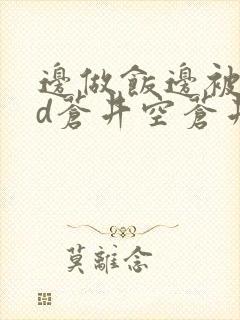 邊做飯邊被
d蒼井空蒼井
莫離念